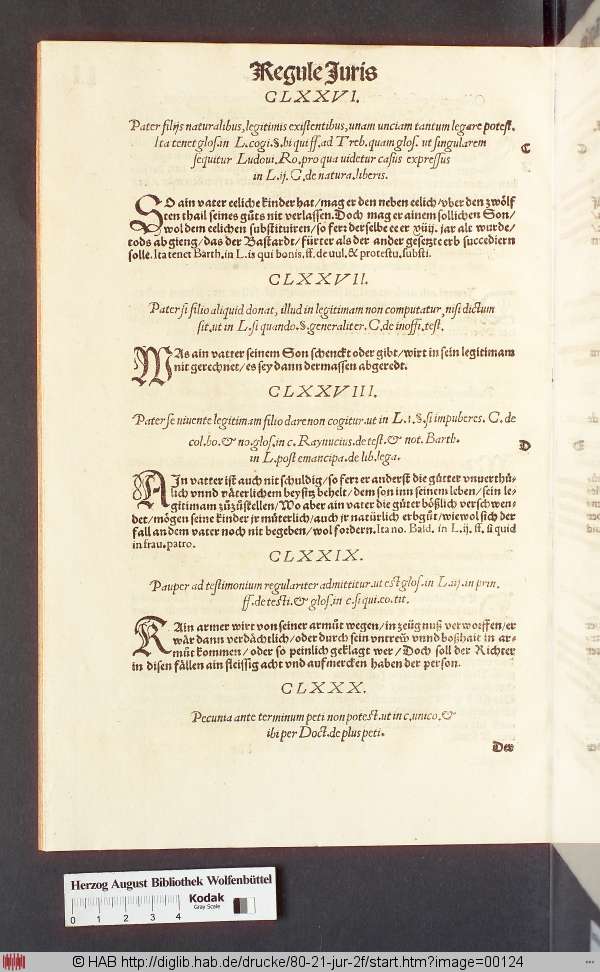 Regule Juris
CLXXVI.
Pater filijs naturalibus, legitimis existentibus, unam unciam tantum legare potest.
Ita tenet glos. in L. cogi. §. hi qui ff. ad Treb. quam glos. ut singularem
sequitur Ludoui. Ro. pro qua uidetur casus expressus
in L. ij. C. de natura. liberis.
C
SO ain vater eeliche kinder hat/ mag er den neben eelich/ vber den zwölf
ten thail seines gůts nit verlassen. Doch mag er ainem sollichen Son/
wol dem eelichen substituiren/ so ferr derselbe ee er xiiij. jar alt wurde/
tods abgieng/ das der Bastardt/ fürter als der ander gesetzte erb succediern
solle. Ita tenet Barth. in L. is qui bonis. ff. de uul. & protestu. substi.
CLXXVII.
Pater si filio aliquid donat, illud in legitimam non computatur, nisi dictum
sit. ut in L. si quando. §. generaliter. C. de inoffi. test.
WAs ain vatter seinem Son schenckt oder gibt/ wirt in sein legitimam
nit gerechnet/ es sey dann dermassen abgeredt.
CLXXVIII.
Pater se uiuente legitimam filio dare non cogitur. ut in L. 1. §. si impuberes. C. de
col. bo. & no. glos. in c. Raynucius. de test. & not. Barth.
in L. post emancipa. de lib. lega.
D
AIn vatter ist auch nit schuldig/ so ferr er anderst die gůtter vnuerthů-
lich vnnd våterlichem beysitz behelt/ dem son inn seinem leben/ sein le-
gitimam zůzůstellen/ Wo aber ain vater die güter bößlich verschwen-
det/ mögen seine kinder jr můterlich/ auch jr natürlich erbgůt/ wiewol sich der
fall an dem vater noch nit begeben/ wol fordern. Ita no. Bald. in L. ij. ff. si quid
in frau. patro.
CLXXIX.
Pauper ad testimonium regulariter admittitur. ut est glos. in L. iij. in prin.
ff. de testi. & glos. in c. si qui. co. tit.
KAin armer wirt von seiner armůt wegen/ in zeügnuß verworffen/ er
wår dann verdåchtlich/ oder durch sein vntrew vnnd boßhait in ar-
můt kommen/ oder so peinlich geklagt wer/ Doch soll der Richter
in disen fållen ain fleissig acht vnd aufmercken haben der person.
CLXXX.
Pecunia ante terminum peti non potest. ut in c. unico. &
ibi per Doct. de plus peti.
Der
Herzog August Bibliothek Wolfenbüttel
0 1 2 3 4
Kodak
Gray Scale
© HAB http://diglib.hab.de/drucke/80-21-jur-2f/start.htm?image=00124